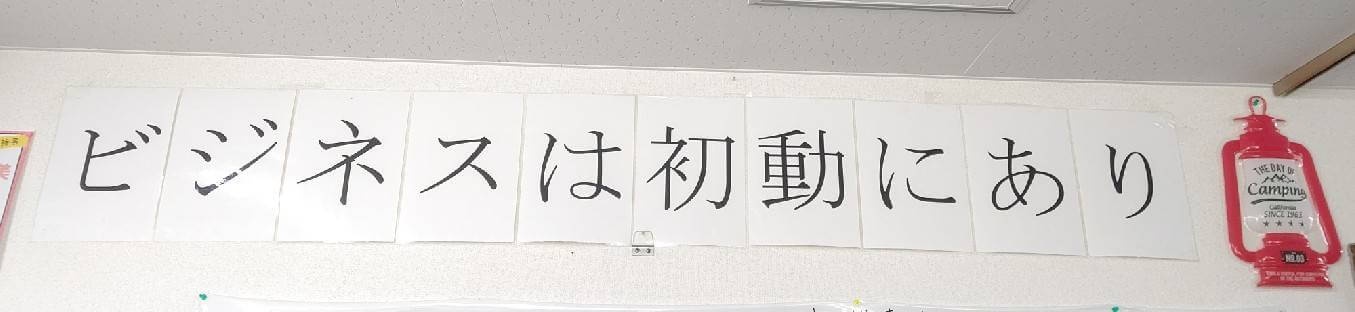 ビジネスは初動にあり
THE DAY OF
Camping
California
SINCE 1963
NO.03